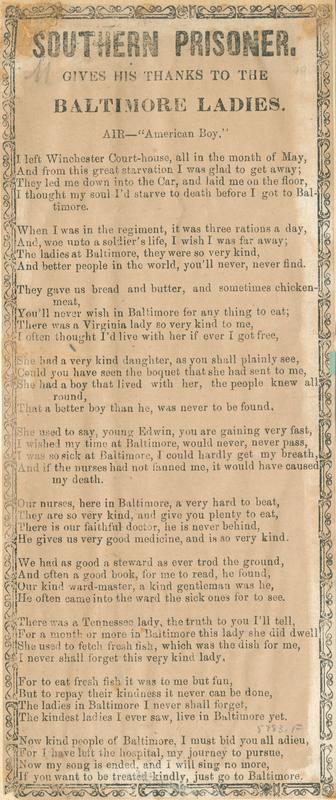 SOUTHERN PRISONER.
GIVES HIS THANKS TO THE
BALTIMORE LADIES.
AIR—"American Boy."
I left Winchester Court-house, all in the month of May,
And from this great starvation I was glad to get away;
They led me down into the Car, and laid me on the floor,
I thought my soul I'd starve to death before I got to Bal-
timore.
When I was in the regiment, it was three rations a day,
And, woe unto a soldier's life, I wish I was far away;
The ladies at Baltimore, they were so very kind,
And better people in the world, you'll never, never find.
They gave us bread and butter, and sometimes chicken-
meat,
You'll never wish in Baltimore for any thing to eat;
There was a Virginia lady so very kind to me,
I often thought I'd live with her if ever I got free,
She had a very kind daughter, as you shall plainly see,
Could you have seen the boquet that she had sent to me,
She had a boy that lived with her, the people knew all
round,
That a better boy than he, was never to be found.
She used to say, young Edwin, you are gaining very fast,
I wished my time at Baltimore, would never, never pass,
I was so sick at Baltimore, I could hardly get my breath,
And if the nurses had not fanned me, it would have caused
my death.
Our nurses, here in Baltimore, a very hard to beat,
They are so very kind, and give you plenty to eat,
There is our faithful doctor, he is never behind,
He gives us very good medicine, and is so very kind.
We had as good a steward as ever trod the ground,
And often a good book, for me to read, he found,
Our kind ward-master, a kind gentleman was he,
He often came into the ward the sick ones for to see.
There was a Tennessee lady, the truth to you I'll tell,
For a month or more in Baltimore this lady she did dwell
She used to fetch fresh fish, which was the dish for me,
I never shall forget this very kind lady.
For to eat fresh fish it was to me but fun,
But to repay their kindness it never can be done,
The ladies in Baltimore I never shall forget,
The kindest ladies I ever saw, live in Baltimore yet.
Now kind people of Baltimore, I must bid you all adieu,
For I have left the hospital, my journey to pursue,
Now my song is ended, and I will sing no more,
If you want to be treated kindly, just go to Baltimore.